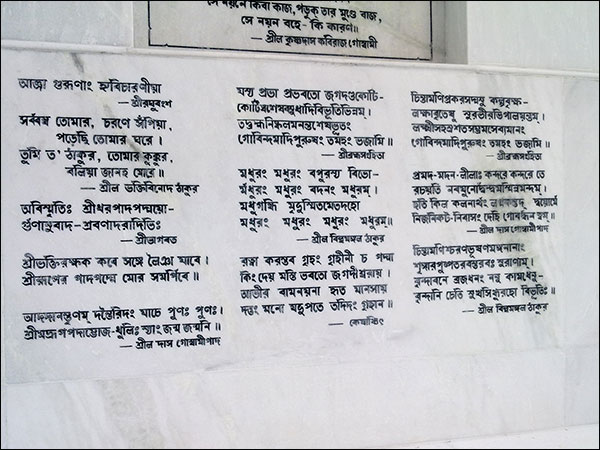 সে নয়নে কিবা কাজ, পড়ুক তার মুণ্ডে বাজ,
সে নয়ন বহে - কি কারণ॥
— শ্রীল কৃষ্ণদাস কবিরাজ গোস্বামী
আজ্ঞা গুরূণাং হ্যবিচারণীয়া
— শ্রীরঘুবংশ
সর্বস্ব তোমার, চরণে সঁপিয়া,
পড়েছি তোমার ঘরে।
তুমি ত' ঠাকুর, তোমার কুকুর,
বলিয়া জানহ মোরে॥
— শ্রীল ভক্তিবিনোদ ঠাকুর
অবিস্মৃতিঃ শ্রীধরপাদপদ্ময়ো-
র্গুণানুবাদ - শ্রবণাদরাদিভিঃ
— শ্রীভাগবত
শ্রীভক্তিরক্ষক কবে সঙ্গে লৈঞা যাবে।
শ্রীরূপের পাদপদ্মে মোর সমর্পিবে॥
আদদানস্তৃণম্ দন্তৈরিদং যাচে পুণঃ পুণঃ।
শ্রীমদ্রূপপদাম্ভোজ-ধূলিঃ স্যাং জন্ম জন্মনি॥
— শ্রীল দাস গোস্বামীপাদ
যস্য প্রভা প্রভবতো জগদণ্ডকোটি-
কোটিষ্বশেষবসুধাদিবিভূতিভিন্নম্।
তদ্ব্রহ্মনিষ্কলমনন্তমশেষভূতং
গোবিন্দমাদিপুরুষং তমহং ভজামি॥
— শ্রীব্রহ্মসংহিতা
মধুরং মধুরং বপুরস্য বিভো-
র্মধুরং মধুরং বদনং মধুরম্।
মধুগন্ধি মৃদুস্মিতমেতদহো
মধুরং মধুরং মধুরং মধুরম্॥
— শ্রীল বিল্বমঙ্গল ঠাকুর
রত্না করস্তব গৃহং গৃহীনী চ পদ্মা
কিং দেয় মস্তি ভবতো জগদীশ্বরায়।
আভীর বামনয়না হৃত মানসায়
দত্তং মনো যদুপতে তদিদং গৃহান॥
— কেষাঞ্চিৎ
চিন্তামণিপ্রকরসদ্মসু কল্পবৃক্ষ-
লক্ষাবৃতেষু সুরভীরভিপালয়ন্তম্।
লক্ষ্মীসহস্রশতসম্ভ্রমসেব্যমানং
গোবিন্দমাদিপুরুষং তমহং ভজামি॥
— শ্রীব্রহ্মসংহিতা
প্রমদ-মদন-লীলাঃ কন্দরে কন্দরে তে
রচয়তি নবযুনোর্দ্বন্দ্বমস্মিন্নমন্দম্।
ইতি কিল কলনার্থং লগ্নকস্তদ্ দ্বয়োর্মে
নিজনিকট-নিবাসং দেহি গোবর্ধন ত্বম্॥
— শ্রীল দাস গোস্বামীপাদ
চিন্তামণিশ্চরণভূষণমঙ্গনানাং
শৃঙ্গারপুষ্পতরবস্তরবঃ সুরাণাম্।
বৃন্দাবনে ব্রজধনং ননু কামধেনু-
বৃন্দানি চেতি সুখসিন্ধুরহো বিভূতিঃ॥
— শ্রীল বিল্বমঙ্গল ঠাকুর